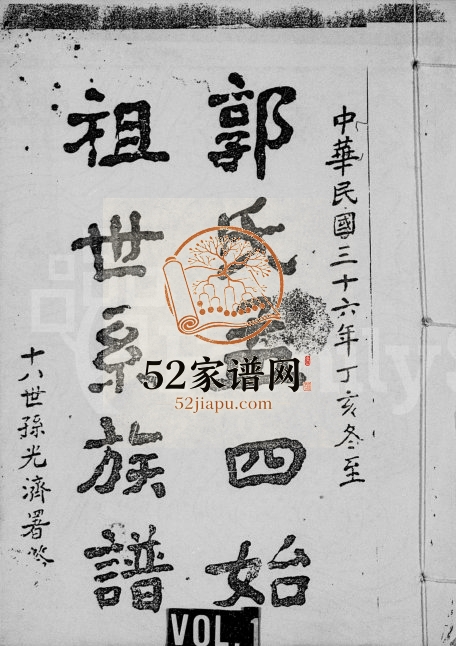 中華民國三十六年丁亥冬至
郭氏四始
祖世系族譜
十八世孫光濟署
52家谱网
52jiapu.com
VOL. 1